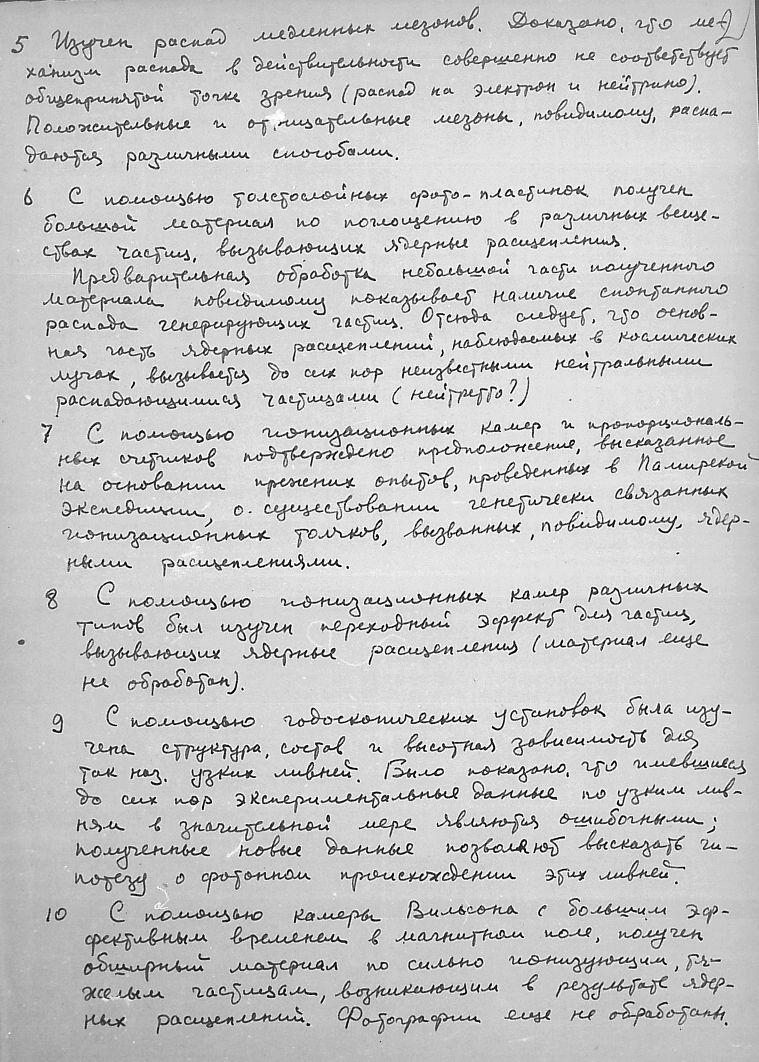 2
5 Изучен распад медленных мезонов. Доказано, что ме-
ханизм распада в действительности совершенно не соответствует
общепринятой точке зрения (распад на электрон и нейтрино).
Положительные и отрицательные мезоны, повидимому, распа-
даются различными способами.
6 С помощью толстослойных фото-пластинок получен
большой материал по поглощению в различных веще-
ствах частиц, вызывающих ядерные расщепления.
Предварительная обработка небольшой части полученного
материала повидимому показывает наличие спонтанного
распада генерирующих частиц. Отсюда следует, что основ-
ная часть ядерных расщеплений, наблюдаемых в космических
лучах, вызывается до сих пор неизвестными нейтральными
распадающимися частицами (нейтретто?)
7 С помощью ионизационных камер и пропорциональ-
ных счетчиков подтверждено предположение, высказанное
на основании прежних опытов, проведенных в Памирской
экспедиции, о существовании генетически связанных
ионизационных толчков, вызванных, повидимому, ядер-
ными расщеплениями.
8 С помощью ионизационных камер различных
типов был изучен переходный эффект для частиц,
вызывающих ядерные расщепления (материал еще
не обработан).
9 С помощью годоскопических установок была изу-
чена структура, состав и высотная зависимость для
так наз. узких ливней. Было показано, что имевшиеся
до сих пор экспериментальные данные по узким лив-
ням в значительной мере являются ошибочными;
полученные новые данные позволяют высказать ги-
потезу о фотонном происхождении этих ливней.
10 С помощью камеры Вильсона с большим эф-
фективным временем в магнитном поле, получен
обширный материал по сильно ионизующим, тя-
желым частицам, возникающим в результате ядер-
ных расщеплений. Фотографии еще не обработаны.